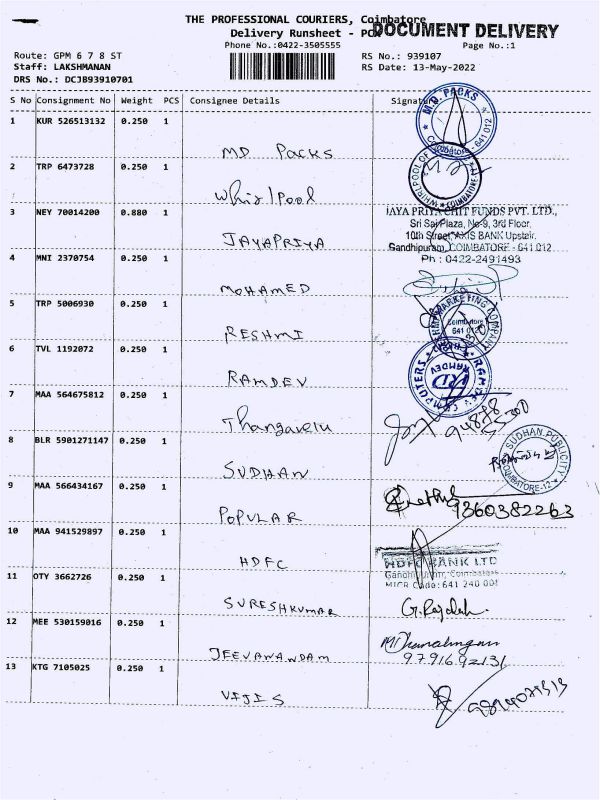 THE PROFESSIONAL COURIERS, Coimbatore
Delivery Runsheet - POD
DOCUMENT DELIVERY
Phone No.:0422-3505555
Page No.:1
Route: GPM 6 7 8 ST
RS No.: 939107
Staff: LAKSHMANAN
RS Date: 13-May-2022
DRS No.: DCJB93910701
S No Consignment No Weight PCS Consignee Details Signature
1 KUR 526513132 0.250 1
MD PACKS
M.D. PACKS
COIMBATORE - 641 012
2 TRP 6473728 0.250 1
Whirlpool
WHIRLPOOL OF
COIMBATORE
3 NEY 70014200 0.880 1
JAYAPRIYA
JAYA PRIYA CHIT FUNDS PVT. LTD.,
Sri Sai Plaza, No-9, 3rd Floor,
10th Street, AXIS BANK Upstair,
Gandhipuram, COIMBATORE - 641 012
Ph : 0422-2491493
4 MNI 2370754 0.250 1
MOHAMED
5 TRP 5006930 0.250 1
RESHMI
MARKETING COMPANY
Coimbatore
641 012
6 TVL 1192072 0.250 1
RAMDEV
RAMDEV COMPUTERS
7 MAA 564675812 0.250 1
Thangavelu
94878
55300
8 BLR 5901271147 0.250 1
SUDHAN
SUDHAN PUBLICITY
COIMBATORE-12
9 MAA 566434167 0.250 1
POPULAR
9360382263
10 MAA 941529897 0.250 1
HDFC
HDFC BANK LTD
Gandhipuram, Coimbatore
MICR Code: 641 240 001
11 OTY 3662726 0.250 1
SURESHKUMAR
G. Rajesh.
12 MEE 530159016 0.250 1
JEEVANANDAM
9791692131
13 KTG 7105025 0.250 1
VIJIS